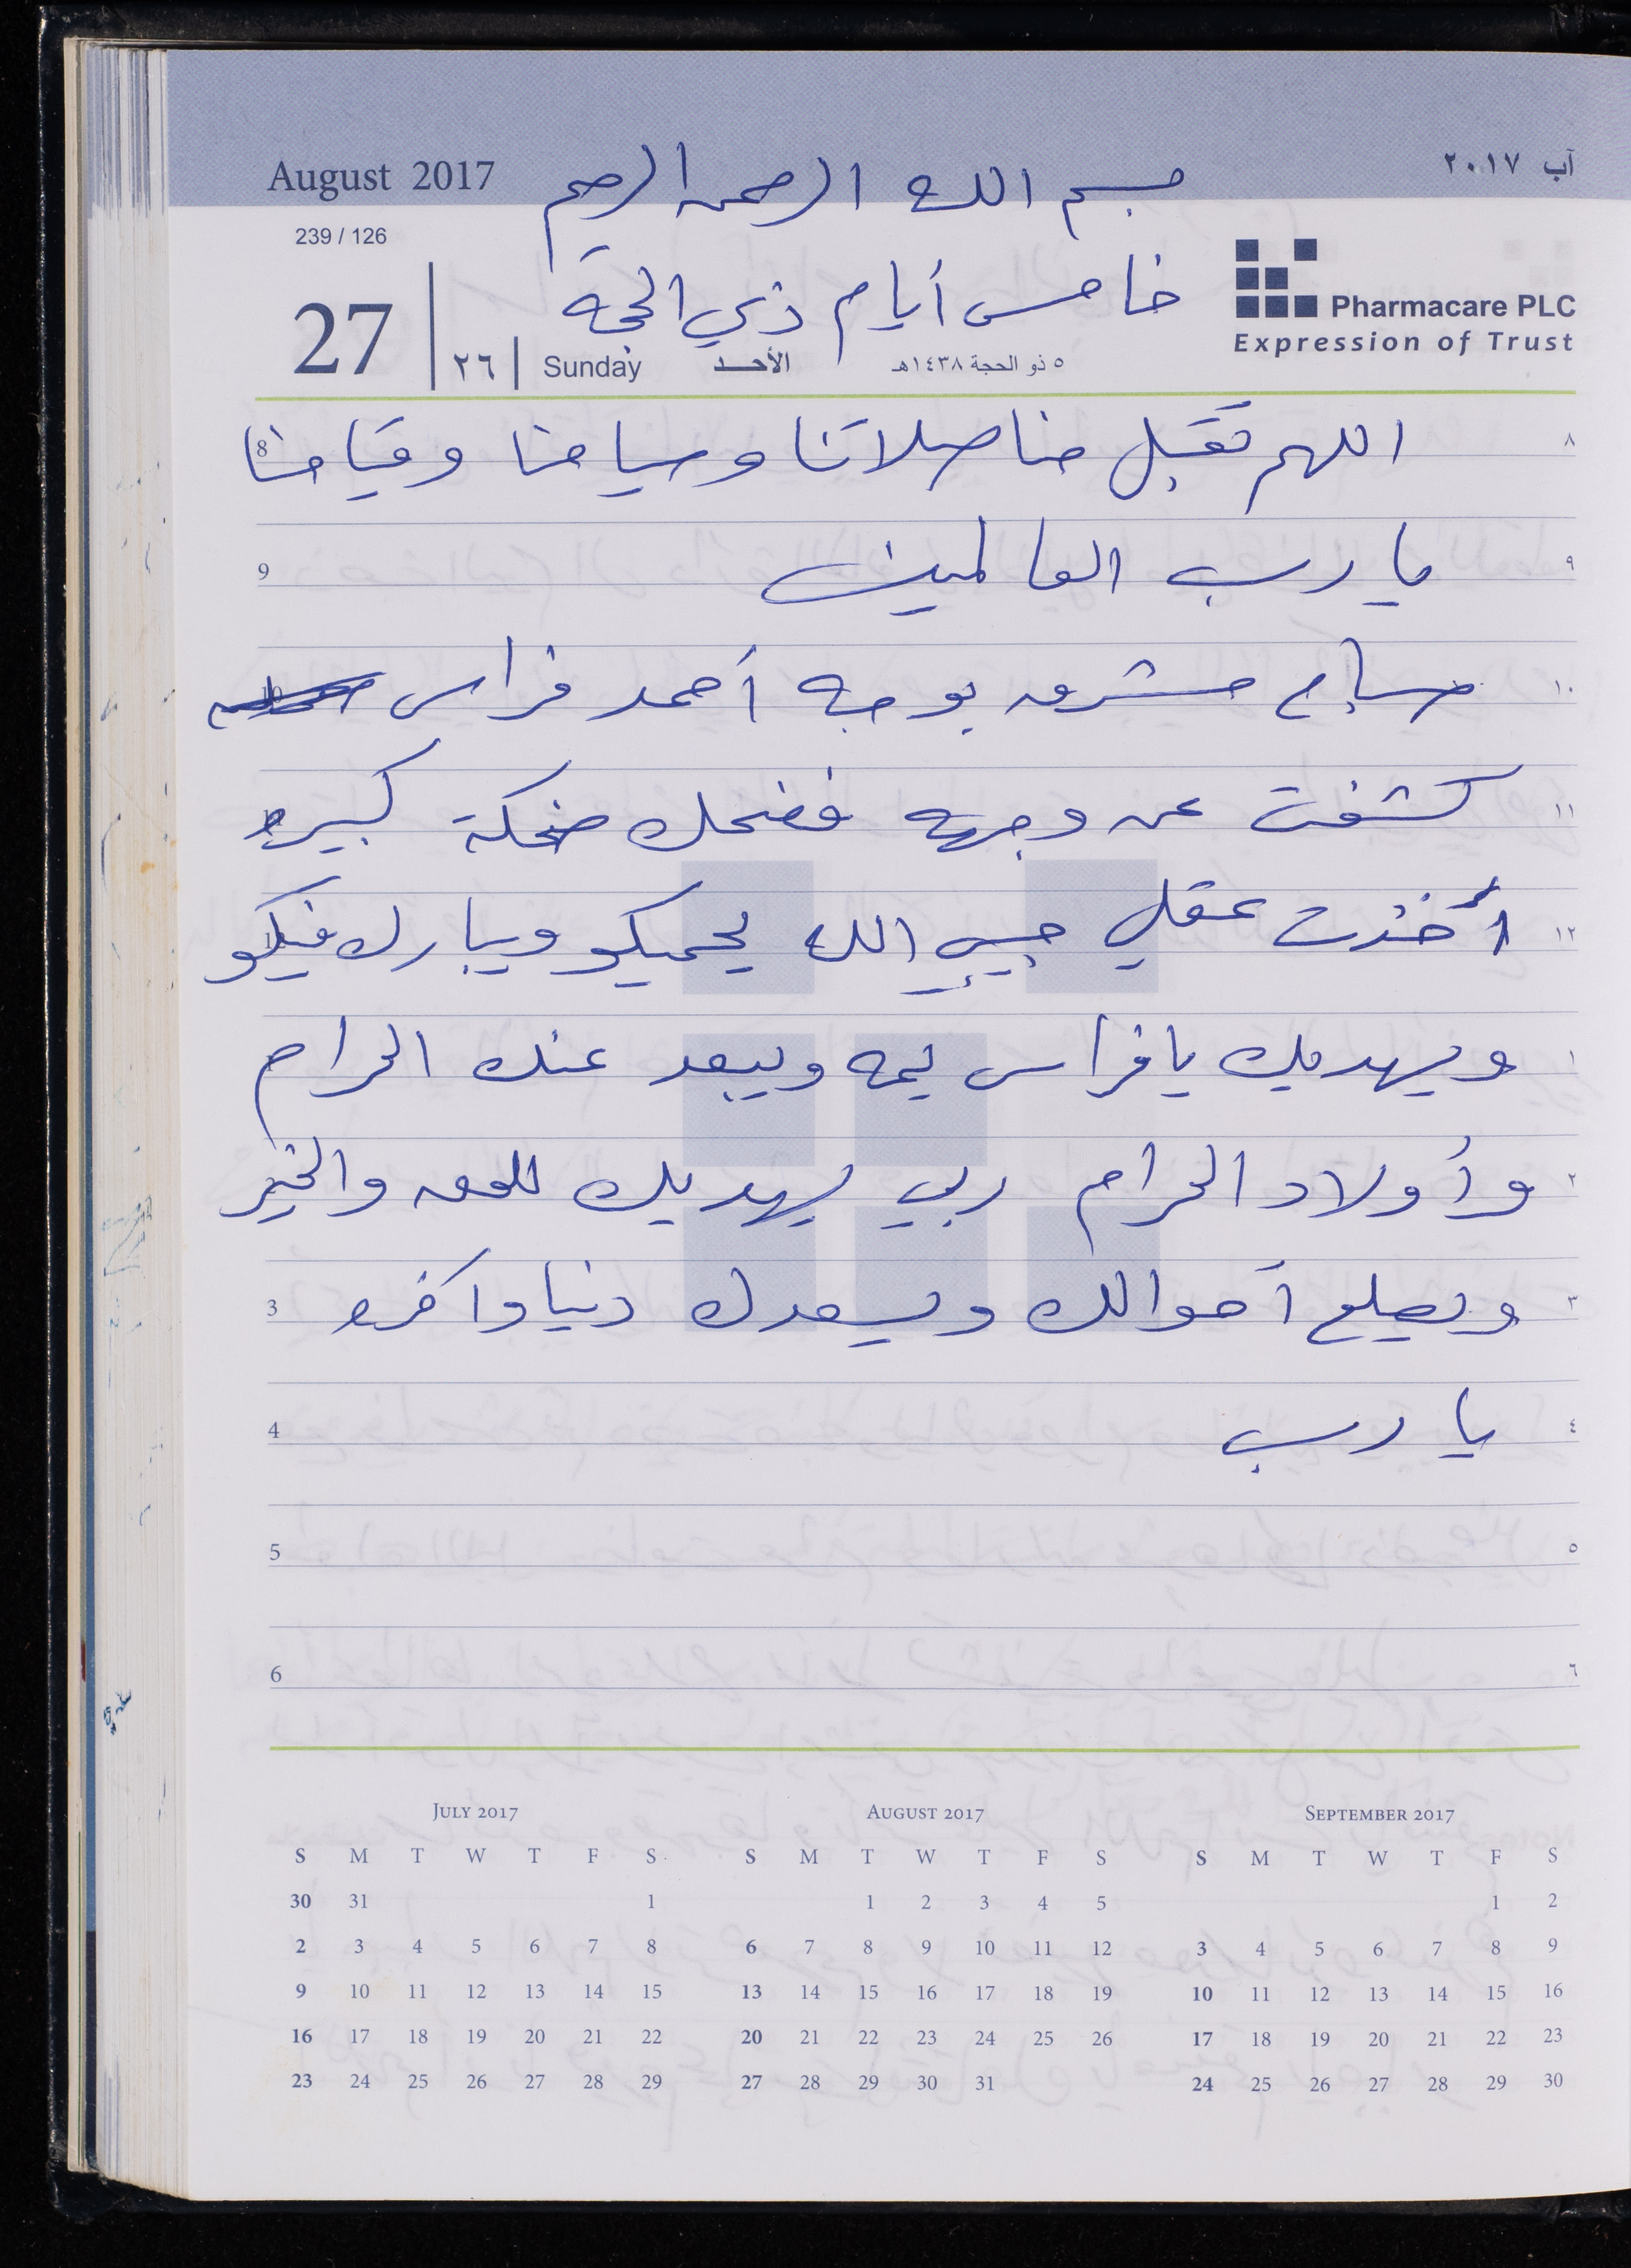 August 2017
بسم الله الرحمن الرحيم
آب ٢٠١٧
239 / 126
خامس أيام ذي الحجة
Pharmacare PLC
Expression of Trust
27 | ٢٦ | Sunday الأحد ٥ ذو الحجة ١٤٣٨هـ
8 اللهم تقبل منا صلاتنا وسيامنا وقيامنا ٨
9 يا رب العالمين ٩
صباح مشرق بوجه أحمد فراس ١٠
كشفت عن وجهه فضحك ضحكة كبيره ١١
أخذت عقلي حبيبي الله يحميكو ويبارك فيكو ١٢
ويهديك يا فراس يمه ويبعد عنك الحرام ١
وأولاد الحرام ربي يهديك للحق والخير ٢
3 ويصلح أحوالك ويسعدك دنيا وآخره ٣
4 يا رب ٤
5 ٥
6 ٦
JULY 2017 AUGUST 2017 SEPTEMBER 2017
S M T W T F S S M T W T F S S M T W T F S
30 31 1 1 2 3 4 5 1 2
2 3 4 5 6 7 8 6 7 8 9 10 11 12 3 4 5 6 7 8 9
9 10 11 12 13 14 15 13 14 15 16 17 18 19 10 11 12 13 14 15 16
16 17 18 19 20 21 22 20 21 22 23 24 25 26 17 18 19 20 21 22 23
23 24 25 26 27 28 29 27 28 29 30 31 24 25 26 27 28 29 30